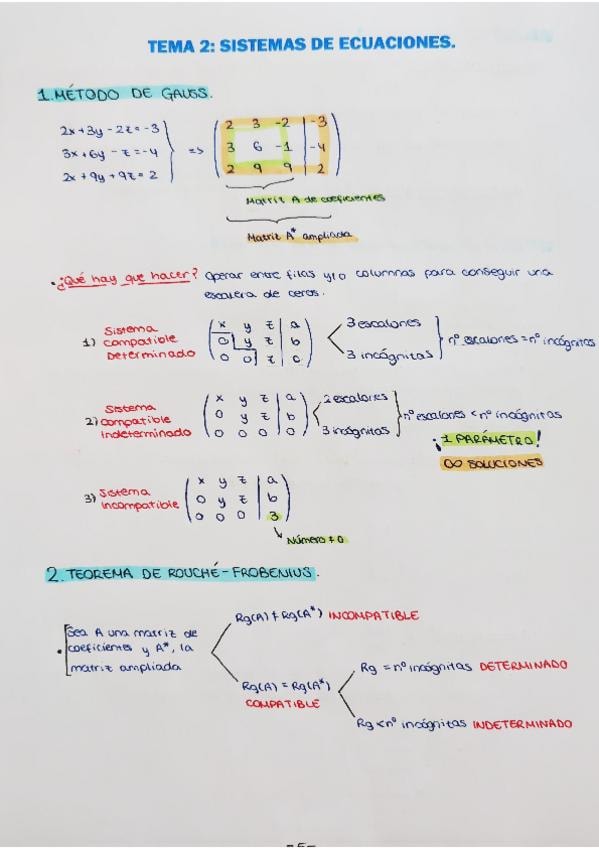 TEMA 2: SISTEMAS DE ECUACIONES.
1. MÉTODO DE GAUSS.
2x+3y-2z=-3
3x+6y-z=-4
2x+9y+9z=2
=>
2 3 -2 | -3
3 6 -1 | -4
2 9 9 | 2
Matriz A de coeficientes
Matriz A* ampliada
• ¿Qué hay que hacer? Operar entre filas y/o columnas para conseguir una
escalera de ceros.
1) Sistema
compatible
Determinado
x y z | a
0 y z | b
0 0 z | c
3 escalones
3 incógnitas
nº escalones = nº incógnitas
2) Sistema
compatible
indeterminado
x y z | a
0 y z | b
0 0 0 | 0
2 escalones
3 incógnitas
nº escalones < nº incógnitas
¡1 PARÁMETRO!
∞ SOLUCIONES
3) Sistema
incompatible
x y z | a
0 y z | b
0 0 0 | 3
Número ≠ 0
2. TEOREMA DE ROUCHÉ-FROBENIUS.
• Sea A una matriz de
coeficientes y A*, la
matriz ampliada
Rg(A) ≠ Rg(A*) INCOMPATIBLE
Rg(A) = Rg(A*)
COMPATIBLE
Rg = nº incógnitas DETERMINADO
Rg < nº incógnitas INDETERMINADO